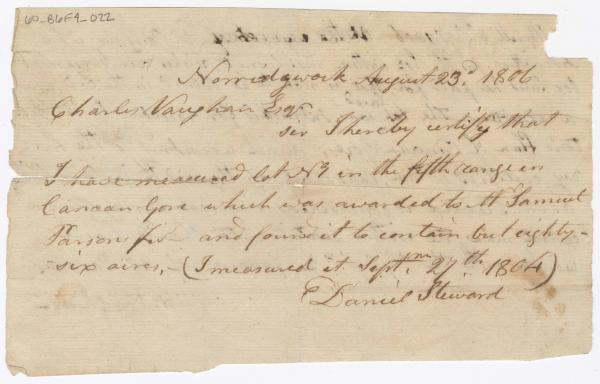 60_B6F4_022
Norridgwock August 23d 1806
Charles Vaughan Esqr
sir I hereby certify that
I have measured lot No 1 in the fifth range in
Canaan Gore which was awarded to Mr. Samuel
Parsons and found it to contain but eighty-
six acres, - (I measured it Septm 27th. 1804)
Daniel Steward